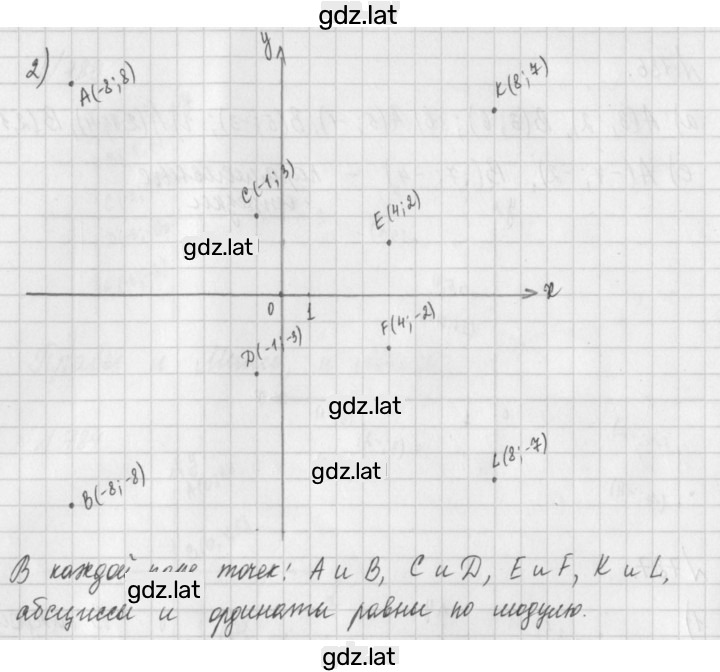 gdz.lat
y
2)
A(-8;8)
K(8;7)
C(-1;3)
E(4;2)
gdz.lat
x
0 1
F(4;-2)
D(-1;-3)
gdz.lat
L(8;-7)
gdz.lat
B(-8;-8)
В каждой паре точек: A и B, C и D, E и F, K и L,
gdz.lat
абсциссы и ординаты равны по модулю.
gdz.lat